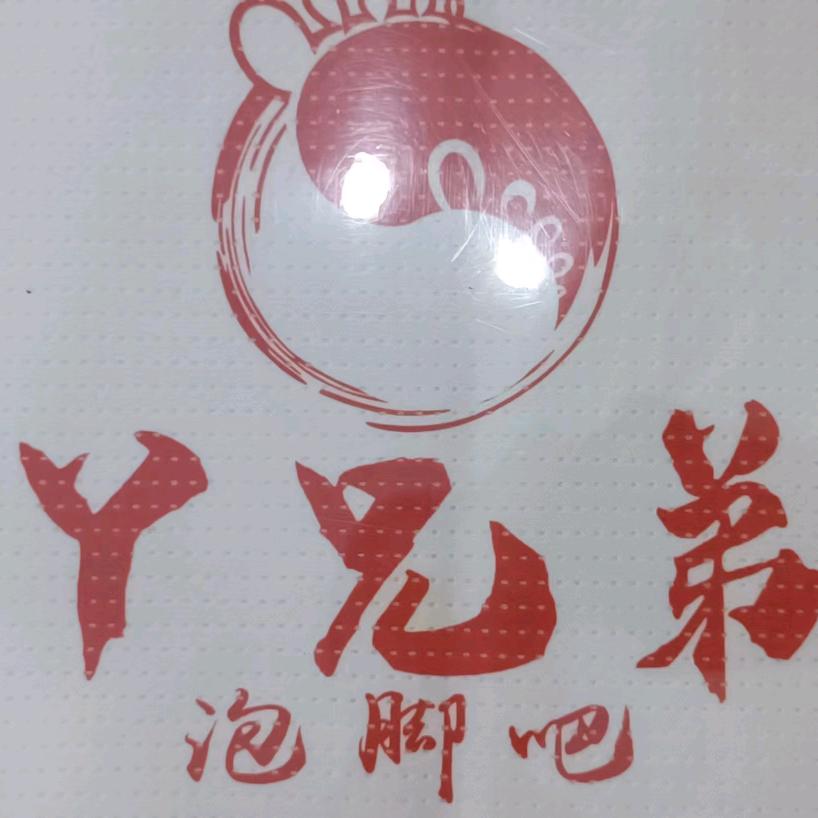 丫兄弟
泡脚吧